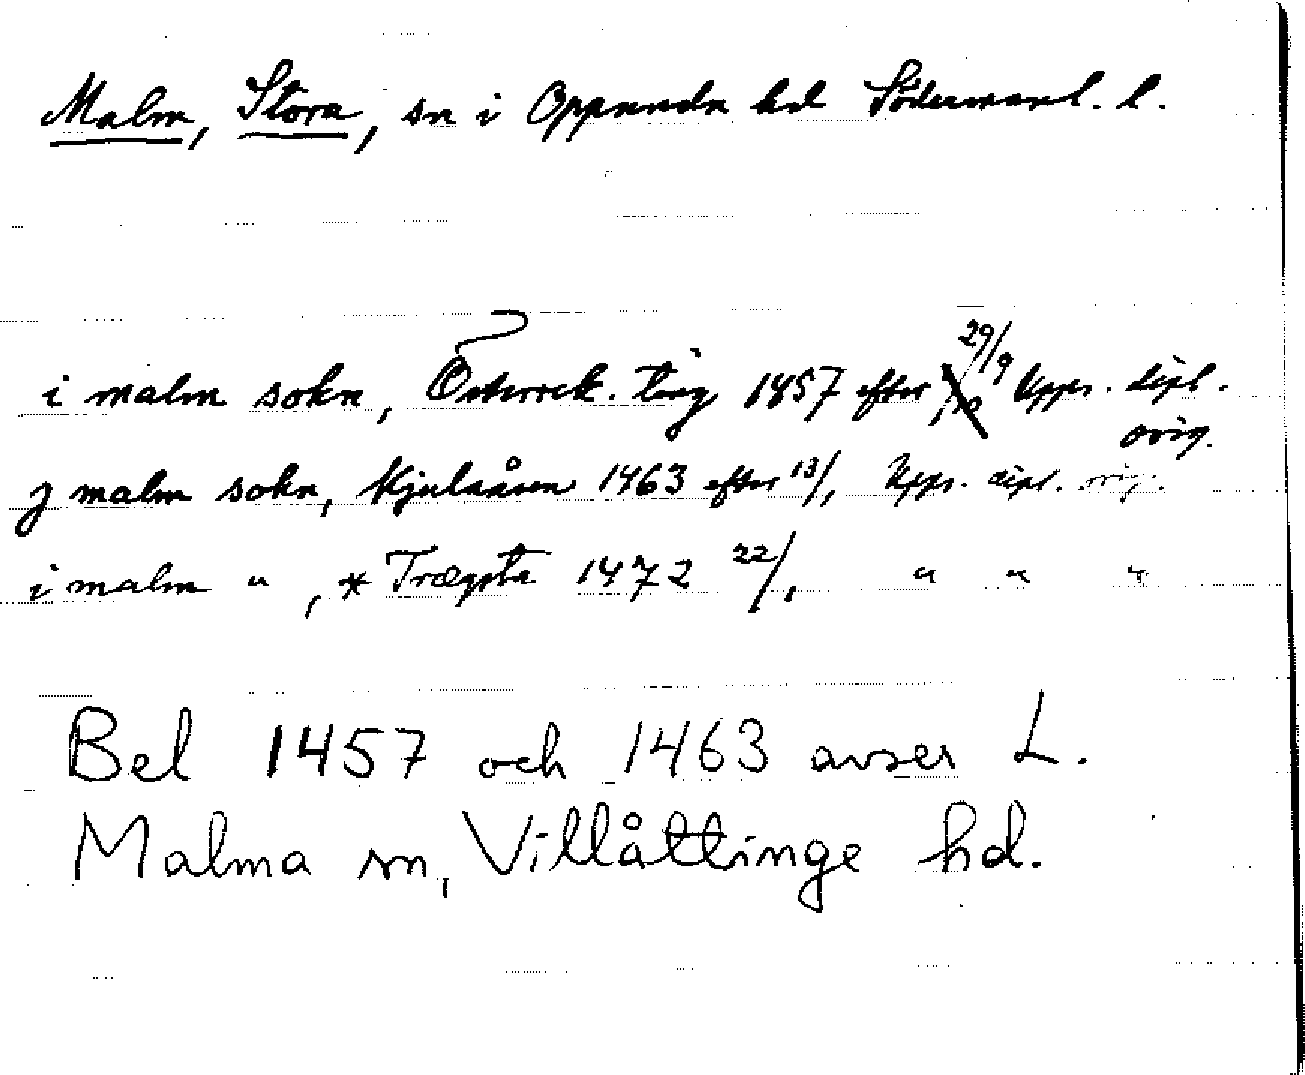 Malm, Stora, sn i Oppunda hd Södermanl. l.
i malm sokn, Österrek. ting 1457 efter 29/9 Upps. dipl. orig.
j malm sokn, Kjulaåsen 1463 efter 13/1 Upps. dipl. orig.
i malm " , * Trægsta 1472 22/1 " " "
Bel 1457 och 1463 avser L.
Malma sn, Villåttinge hd.